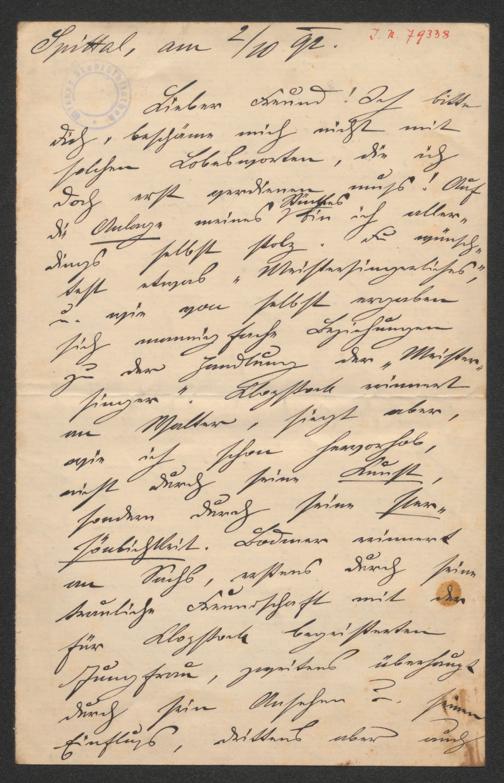 J. N. 79338
Spittal, am 2/10 92.
Lieber Freund! Ich bitte
Dich, beschäme mich nicht mit
solchen Lobesworten, die ich
doch erst verdienen muss! Auf
die Anlage meines Buches bin ich aller-
dings selbst stolz. Du wünsch-
test etwas „Meistersingerliches",
u. wie von selbst ergaben
sich mannigfache Beziehungen
zu der Handlung der „Meister-
singer". Klopstock erinnert
an Walter, siegt aber,
wie ich schon hervorhob,
nicht durch seine Kunst,
sondern durch seine Per-
sönlichkeit. Bodmer erinnert
an Sachs, erstens durch seine
trauliche Freundschaft mit der
für Klopstock begeisterten
Jungfrau, zweitens überhaupt
durch sein Ansehen u. seinen
Einfluss, drittens aber auch